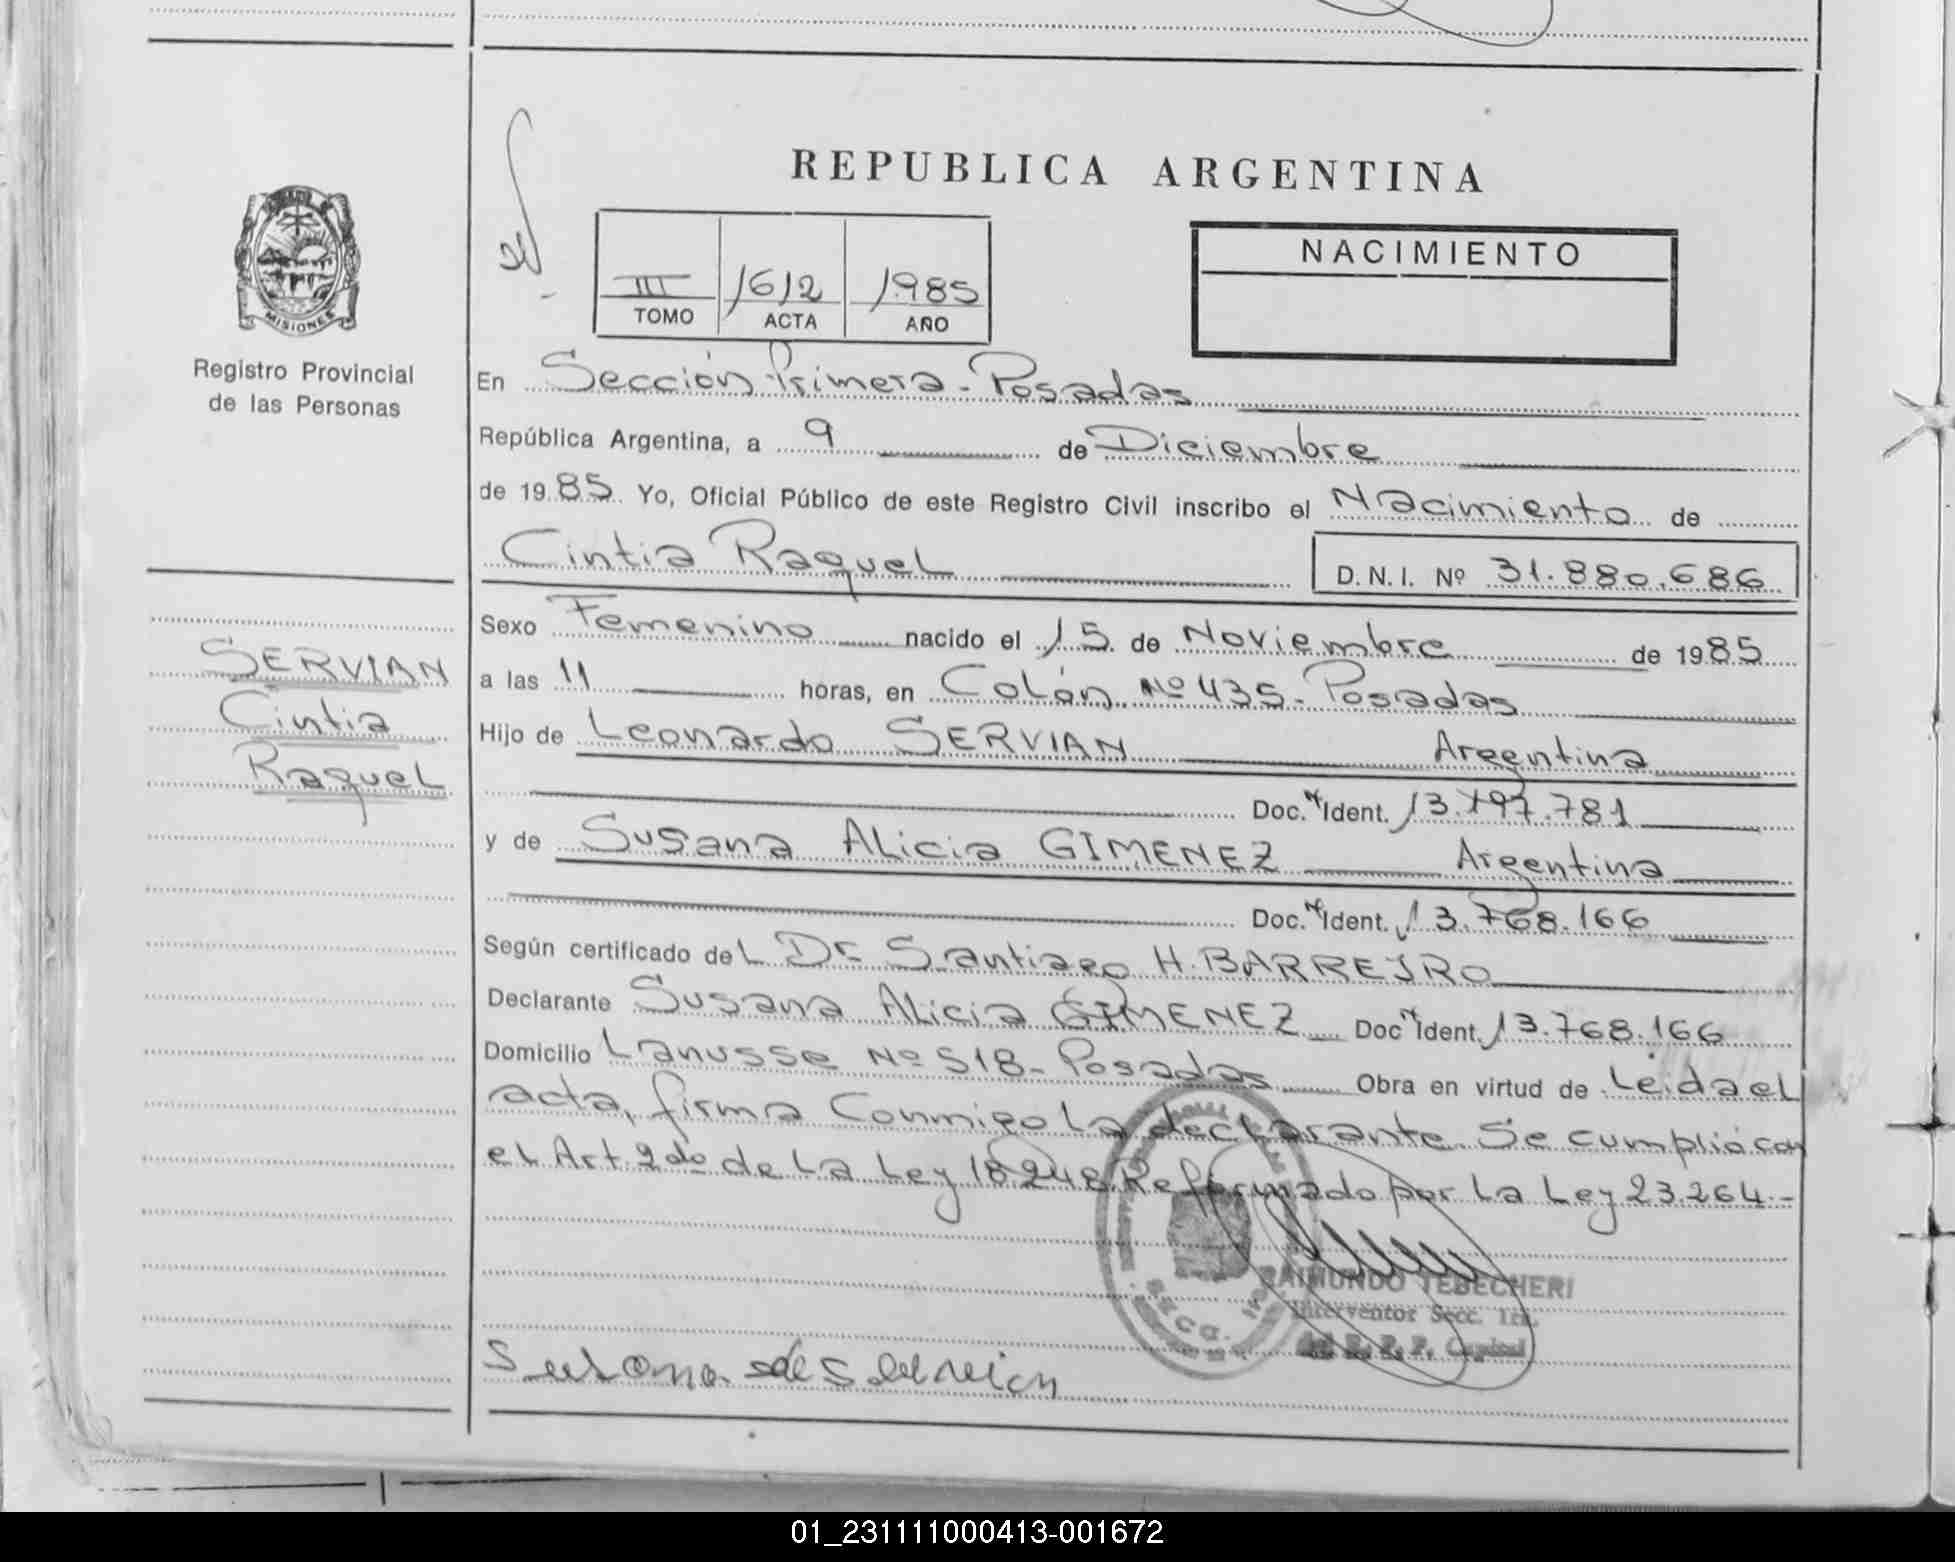 REPUBLICA ARGENTINA
NACIMIENTO
III 1612 1985
TOMO ACTA AÑO
MISIONES
Registro Provincial
de las Personas
SERVIAN
Cintia
Raquel
En Sección Primera - Posadas
República Argentina, a 9 de Diciembre
de 1985 Yo, Oficial Público de este Registro Civil inscribo el Nacimiento de
Cintia Raquel D.N.I. Nº 31.880.686
Sexo Femenino nacido el 15 de Noviembre de 1985
a las 11 horas, en Colón Nº 435 - Posadas
Hijo de Leonardo SERVIAN Argentina
Doc. Ident. 13.197.781
y de Susana ALicia GIMENEZ Argentina
Doc. Ident. 13.768.166
Según certificado del Dr. Santiago H. BARREIRO
Declarante Susana ALicia GIMENEZ Doc Ident. 13.768.166
Domicilio Lanusse Nº 518 - Posadas Obra en virtud de Leida el
acta, firma conmigo la declarante. Se cumplió con
el Art. 2do de la Ley 18248 Reformado por la Ley 23.264.-
RAIMUNDO TEBECHERI
Interventor Secc. 1ra.
del R. P. P. Capital
01_231111000413-001672